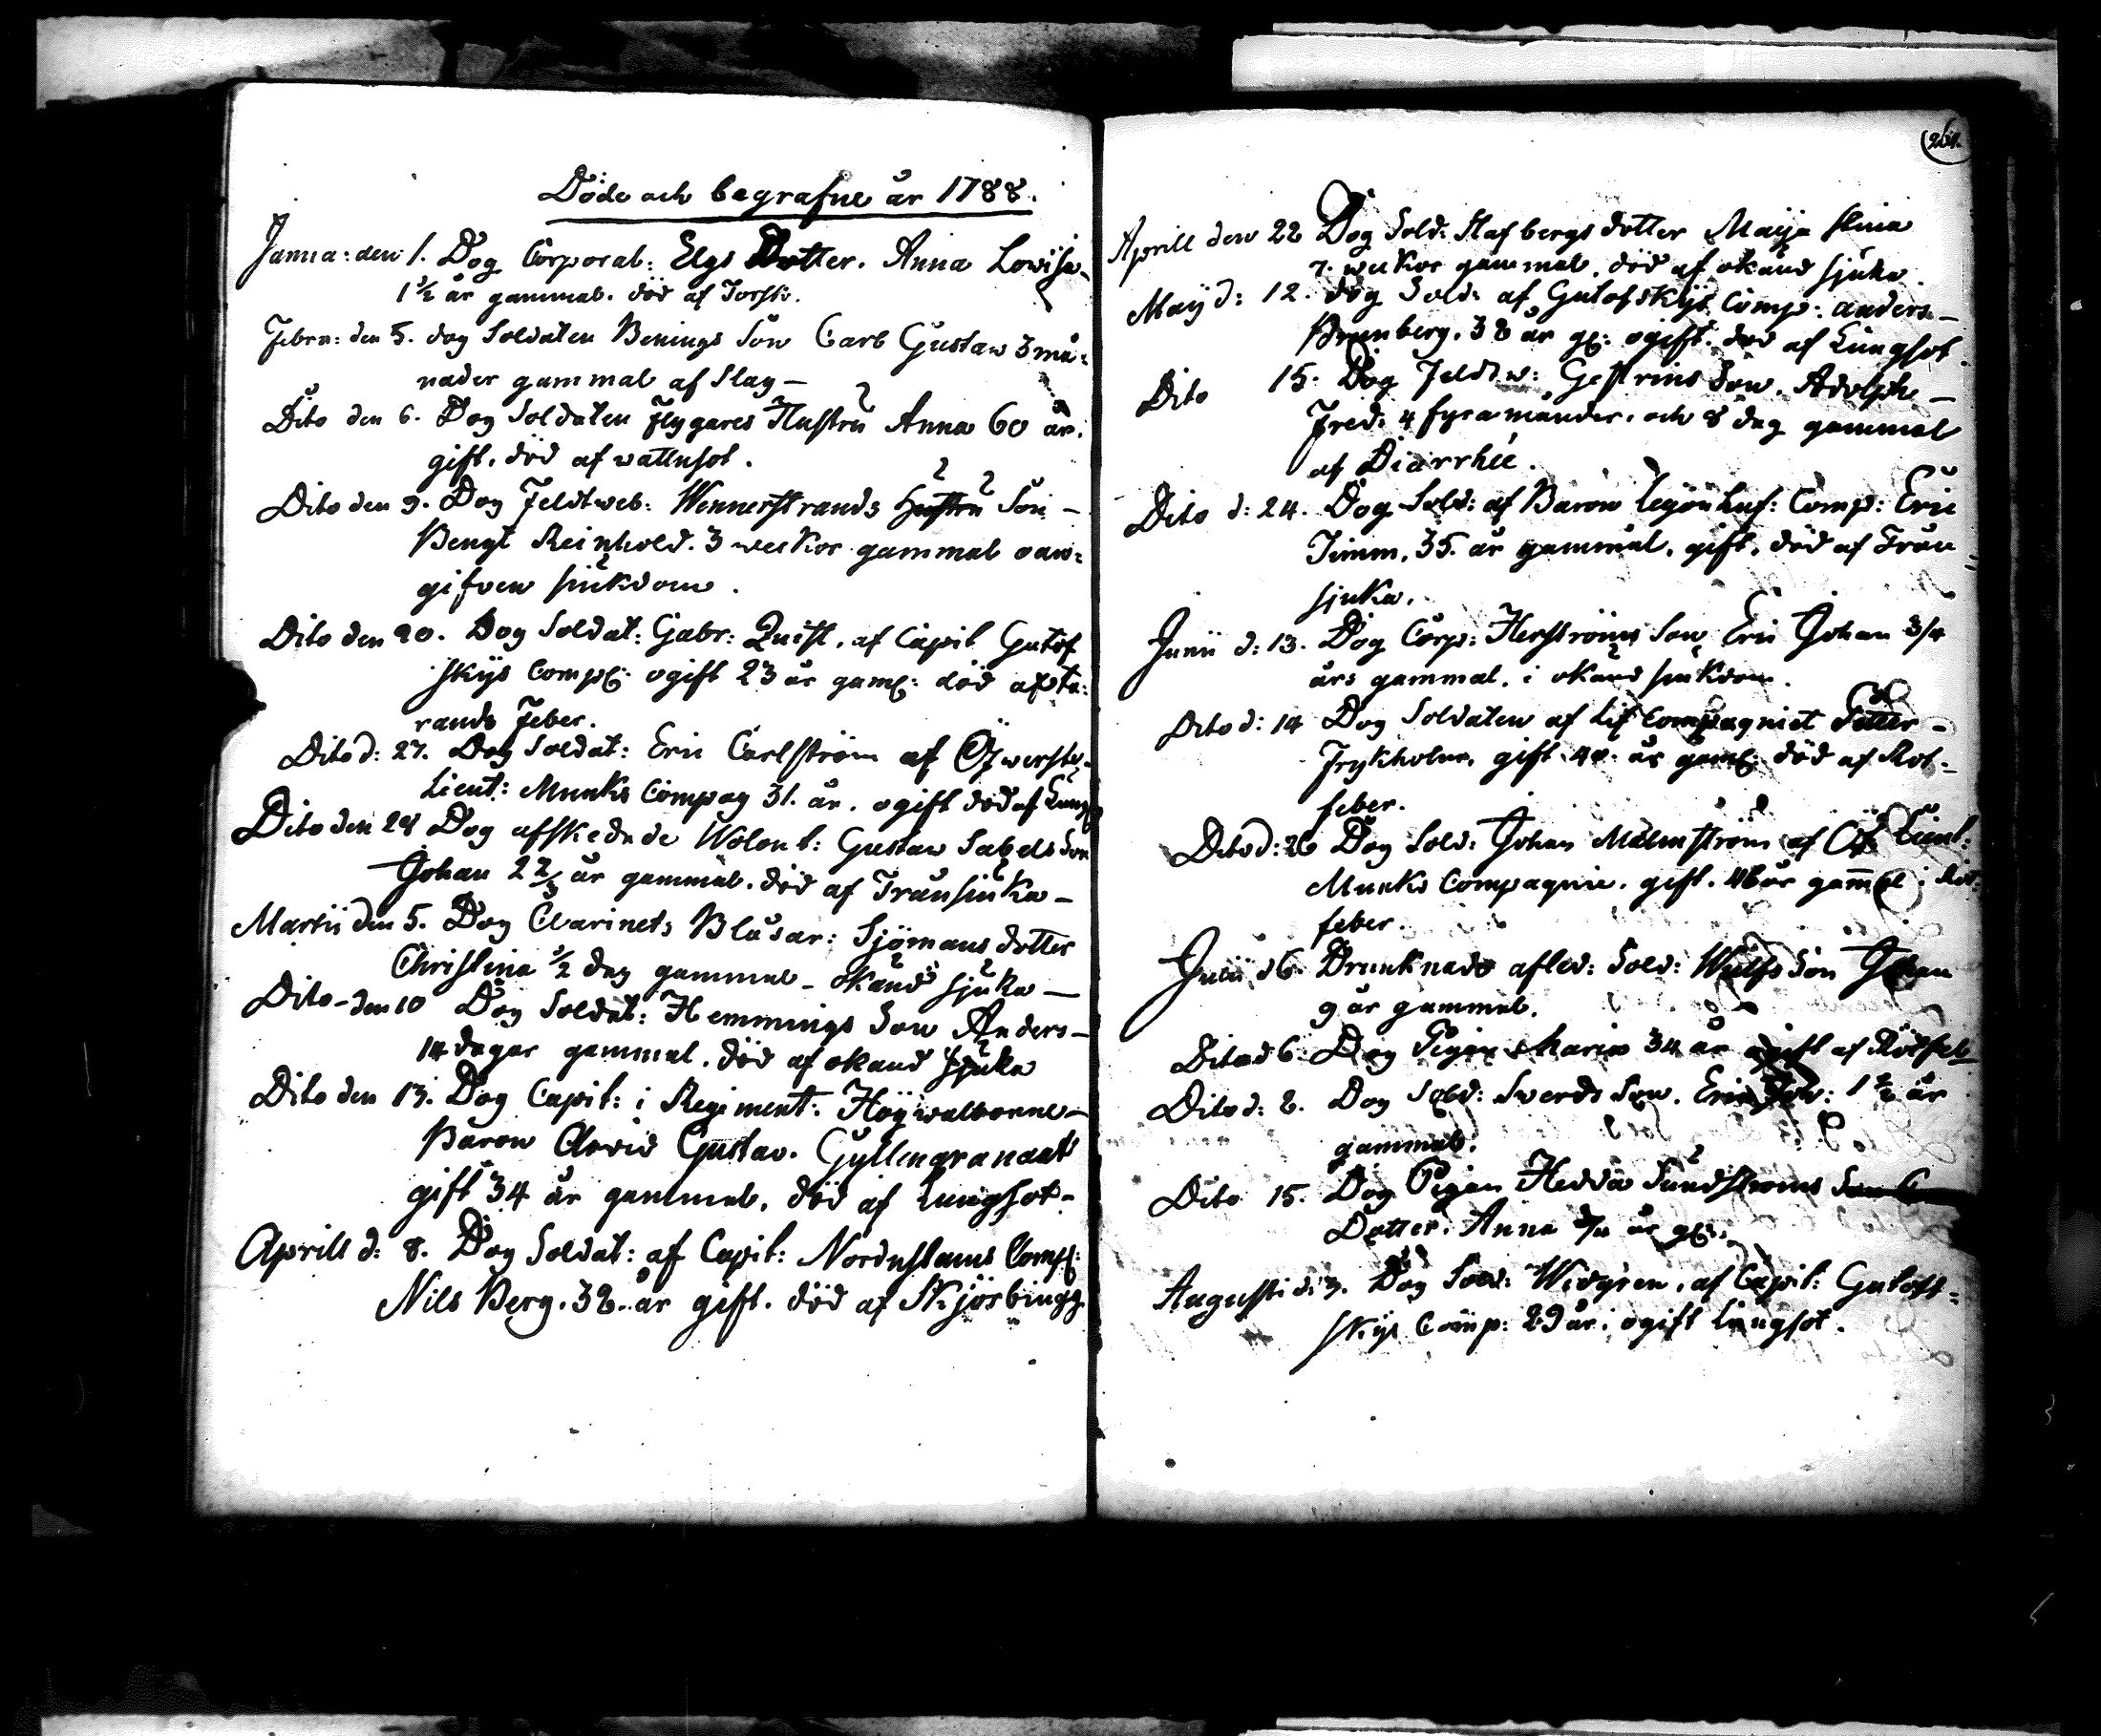 Döde och begrafne år 1788.
Janua: den 1. Dog Corporal: Elgs Dotter. Anna Lovisa
1 1/2 år gammal. död af Torsk.
Febru: den 5. dog Soldaten Benings Son Carl Gustaw 3 må-
nader gammal af Slag —
Dito den 6. Dog Soldaten Flygares Hustru Anna 60 år.
gift. död af wattusot.
Dito den 9. Dog Feldtweb: Wennerstrands Hustru Son —
Bengt Reinhold. 3 weckor gammal oan-
gifven siukdom.
Dito den 20. Dog Soldat: Gabr: Quist. af Capit Gutof
skys Comp: ogift 23 år gaml: död af
rande Feber.
Dito d: 27. Dog Soldat: Eric Carlström af Öfwerste-
Lieut: Munks Compag 31. år. ogift död af
Dito den 28 Dog afskedade Wolont: Gustaw Sabels Son
Johan 2 2/3 år gammal. död af Transiuka —
Martii den 5. Dog Clarinets Blåsar: Sjömans dotter
Christina 1/2 dag gammal — okand sjuka —
Dito — den 10 Dog Soldat: Hemmings Son Anders —
14 dagar gammal. död af okand sjuka
Dito den 13. Dog Capit: i Regiment: Högwalborne —
Baron Arvid Gustav. Gyllengranaat
gift 34 år gammal. död af Lungsot —
Aprill d: 8. Dog Soldat: af Capit: Nordenstams Comp:
Nils Berg. 32. år gift. död af Skjörbiugg
264.
Aprill den 22 Dog Sold: Stafbergs dotter Maija Stina
7. weckor gammal. död af okand sjuka.
May d: 12. dog Sold: af Gutofskys Comp: anders —
Brunberg. 38 år gl: ogift. död af Lungsot.
Dito 15. Dog Feldtw: Gestrins Son. Adolph —
Fred: 4 fyra månder. och 8 dag gammal
af Diarrhée.
Dito d: 24. Dog Sold: af Baron Lejonhuf: Comp: Eric
Timm. 35. år gammal. gift. död af Tran
sjuka.
Junii d: 13. Dog Corp: Herströms Son Eric Johan 3/4
års gammal. i okand siukdom.
Dito d: 14 Dog Soldaten af Lif Compagniet Petter —
Frykholm. gift 40. år gaml: död af Röt-
feber.
Dito d: 26 Dog Sold: Johan Malmström af Öf: Lieut:
Munks Compagnie. gift. 46 år gammal i Röt-
feber.
Julii d 6. Drunknade afled: Sold: Wulfs Son Johan
9 år gammal.
Dito d 6. Dog Pigan Maria 34 år ogift af Rötfeb
Dito d: 8. Dog Sold: Swerds Son. Eric Joh: 1 1/2 år
gammal.
Dito 15. Dog Pigan Hedda Sundströms Son
Dotter. Anna 3/4 år gl:.
Augusti d: 3. Dog Sold: Widgren. af Capit: Gutoff-
skys Comp: 29 år. ogift Lungsot.